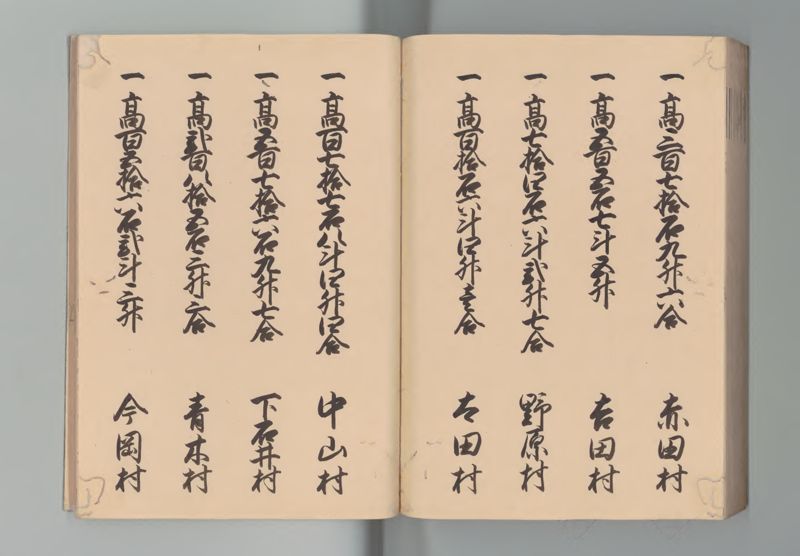 一 高三百七拾石九升六合 赤田村
一 高五百五石七斗五升 吉田村
一 高七拾四石六斗弐升七合 野原村
一 高百拾石六斗四升壱合 太田村
一 高百七拾七石八斗四升四合 中山村
一 高五百七拾六石九升七合 下石井村
一 高弐百八拾五石三升六合 青木村
一 高百五拾六石弐斗三升 今岡村